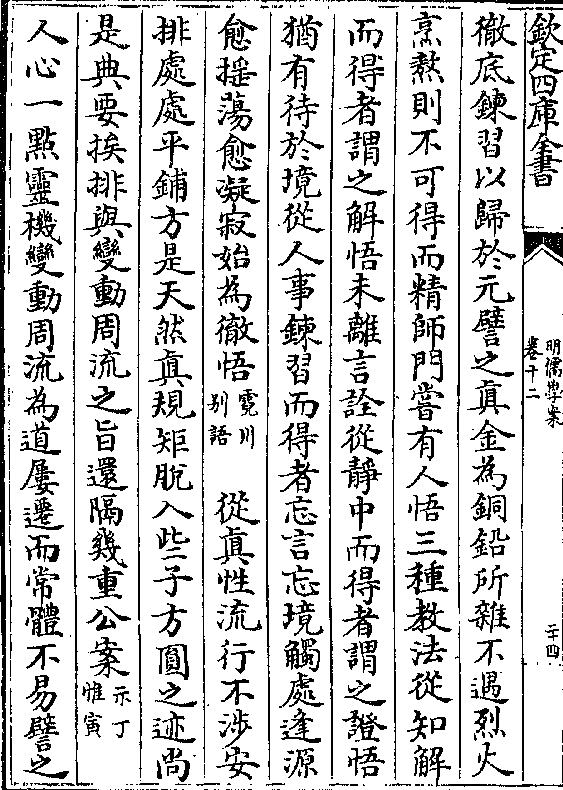 欽定四庫全書
明儒學案
卷十二
二十四
徹底鍊習以歸於元譬之真金為銅鉛所雜不遇烈火
烹熬則不可得而精師門嘗有人悟三種教法從知解
而得者謂之解悟未離言詮從靜中而得者謂之證悟
猶有待於境從人事鍊習而得者忘言忘境觸處逢源
愈揺蕩愈凝寂始為徹悟霓川别語　從真性流行不涉安
排處處平鋪方是天然真規矩脫入些子方圓之迹尚
是典要挨排與變動周流之旨還隔幾重公案示丁惟寅
人心一點靈機變動周流為道屢遷而常體不易譬之